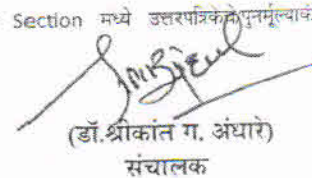 Section मध्ये उत्तरपत्रिकेचे पुनर्मूल्यांक
(डॉ.श्रीकांत ग. अंधारे)
संचालक